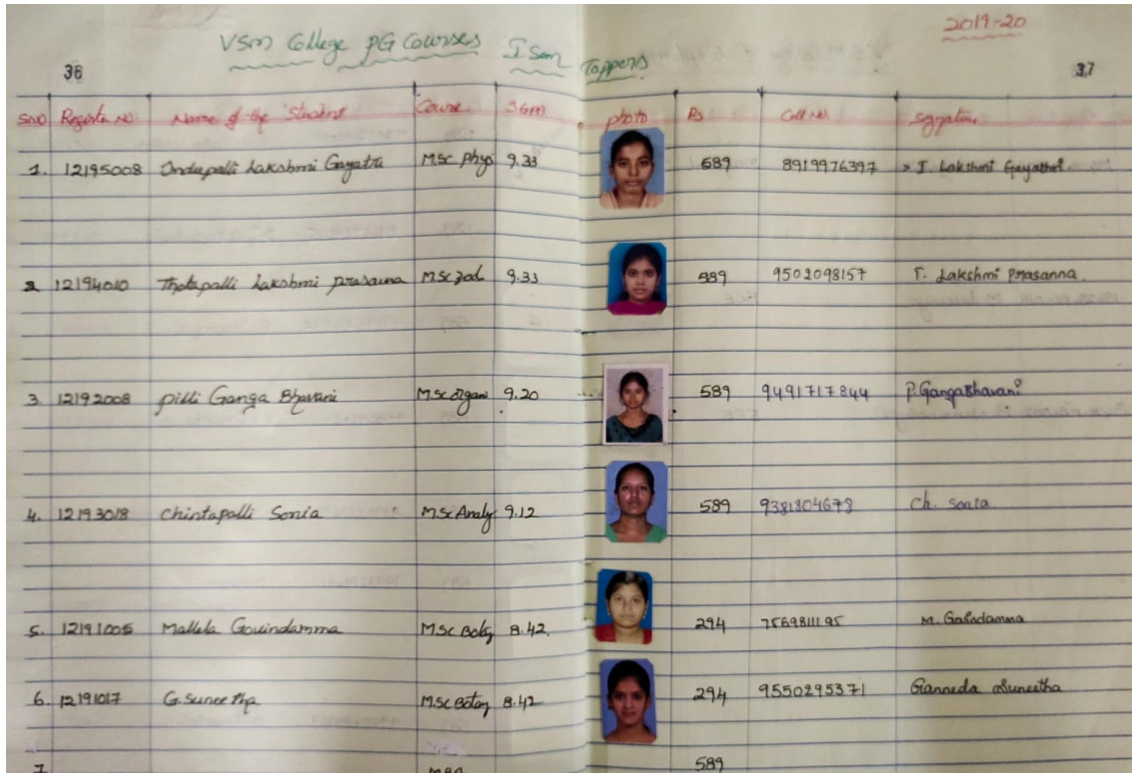 2019-20
VSM College PG Courses I Sem Toppers
36 37
SNO Registe No Name of the Student Course SGM photo Rs Cell No. Signature
1. 12195008 Indapalli Lakshmi Gayatri M.Sc phy 9.33 589 8919976397 I. Lakshmi Gayathri
2 12194010 Thotapalli Lakshmi prasanna M.Sc zool 9.33 589 9502098157 T. Lakshmi Prasanna
3. 12192008 pilli Ganga Bhavani M.Sc organ 9.20 589 9491717844 P. GangaBhavani
4. 12193018 Chintapalli Sonia M.Sc Analy 9.12 589 9381804678 Ch. Sonia
5. 12191005 Mallela Govindamma M.Sc Botny 8.42 294 7569811195 M.
6. 12191017 G. Suneetha M.Sc Botny 8.42 294 9550295371 Ganneda Suneetha
7 MBA 589